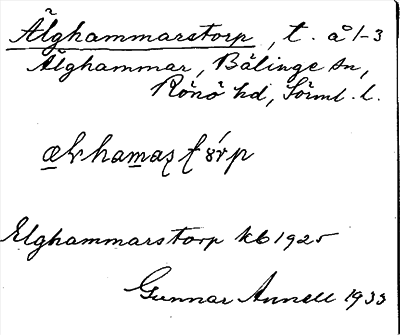 Älghammarstorp, t. å 1-3
Älghammar, Bälinge sn,
Rönö hd, Sörml. l.
Elghammarstorp kb 1925
Gunnar Annell 1933